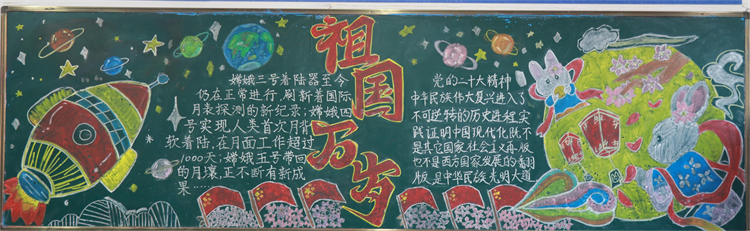 嫦娥三号着陆器至今
仍在正常进行,刷新着国际
月表探测的新纪录;嫦娥四
号实现人类首次月背
软着陆,在月面工作超过
1000天;嫦娥五号带回
的月壤,正不断有新成
果……
祖国万岁
党的二十大精神
中华民族伟大复兴进入了
不可逆转的历史进程,实
践证明中国现代化既不
是其它国家社会主义再版
也不是西方国家发展的翻
版,是中华民族光明大道